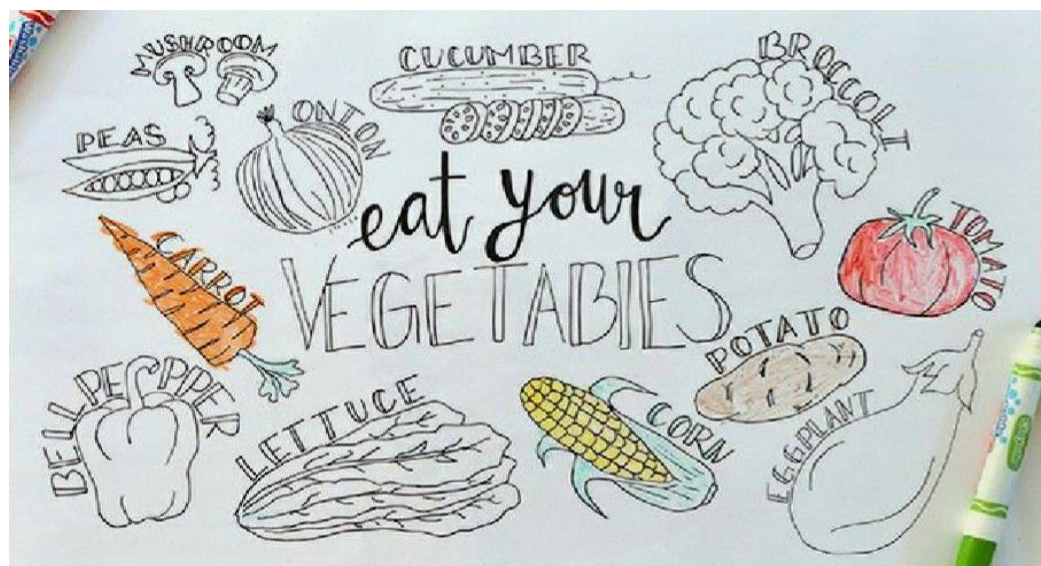 MUSHROOM
CUCUMBER
BROCCOLI
PEAS
ONION
eat your
VEGETABLES
TOMATO
CARROT
POTATO
BELL PEPPER
LETTUCE
CORN
EGGPLANT